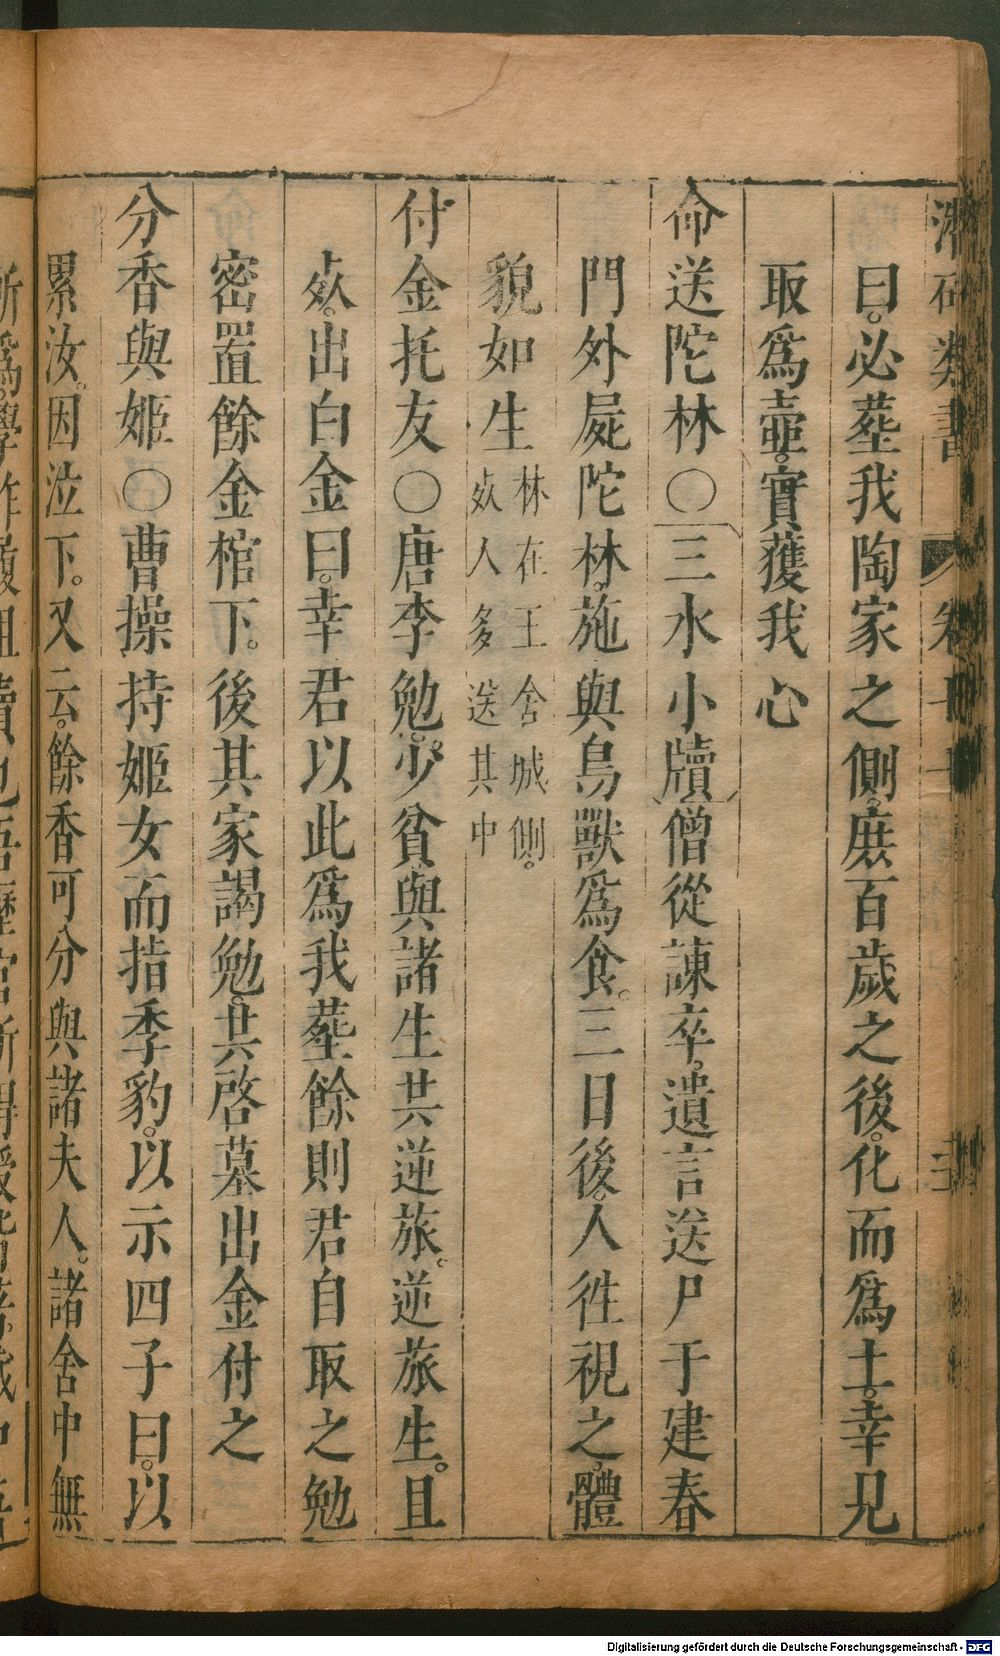 曰。必塟我陶家之側。庶百歲之後。化而爲土。幸見
取爲壺。實獲我心
命送陀林○三水小牘僧從諫卒。遺言送尸于建春
門外屍陀林。施與鳥獸爲食。三日後。人徃視之。體
貌如生林在王舍城側。
死人多送其中
付金托友○唐李勉。少貧與諸生共逆旅。逆旅生。且
死。出白金曰。幸君以此爲我塟餘則君自取之勉
密置餘金棺下。後其家謁勉。共啓墓出金付之
分香與姬○曹操持姬女而指季豹。以示四子曰。以
累汝。因泣下。又云。餘香可分與諸夫人。諸舍中無
Digitalisierung gefördert durch die Deutsche Forschungsgemeinschaft - DFG